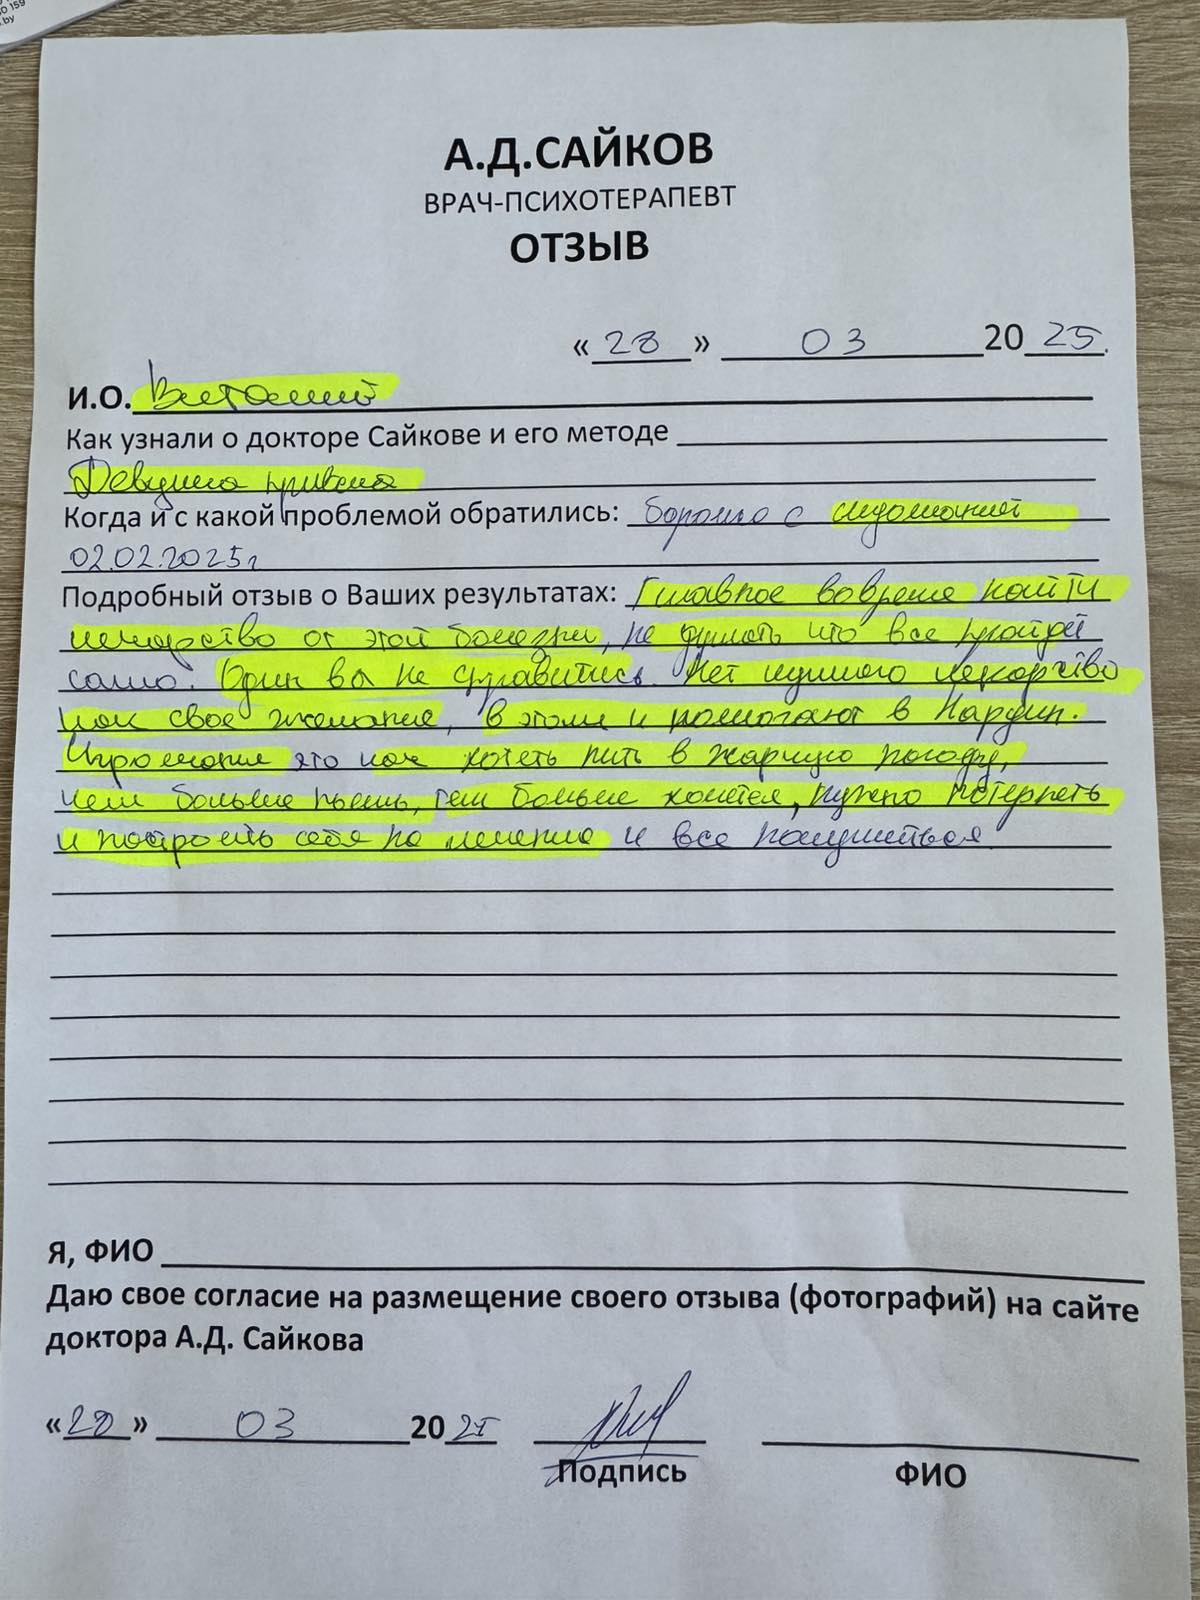 О 159
.by
А.Д.САЙКОВ
ВРАЧ-ПСИХОТЕРАПЕВТ
ОТЗЫВ
«28» 03 2025.
И.О. Виталий
Как узнали о докторе Сайкове и его методе
Девушка привела
Когда и с какой проблемой обратились: борольо с
02.02.2025г
Подробный отзыв о Ваших результатах: Главное вовремя найти
лекарство от этой болезни, не думать что все пройдёт
само. Один вы не справитись. Нет лучшего лекарство
как свое желание, в этом и помогают в Нардин.
Игромания это как хотеть пить в жаркую погоду,
чем больше пьешь, тем больше хочется, нужно потерпеть
и настроить себя на лечение и все получиться
Я, ФИО
Даю свое согласие на размещение своего отзыва (фотографий) на сайте
доктора А.Д. Сайкова
«28» 03 2025
Подпись ФИО